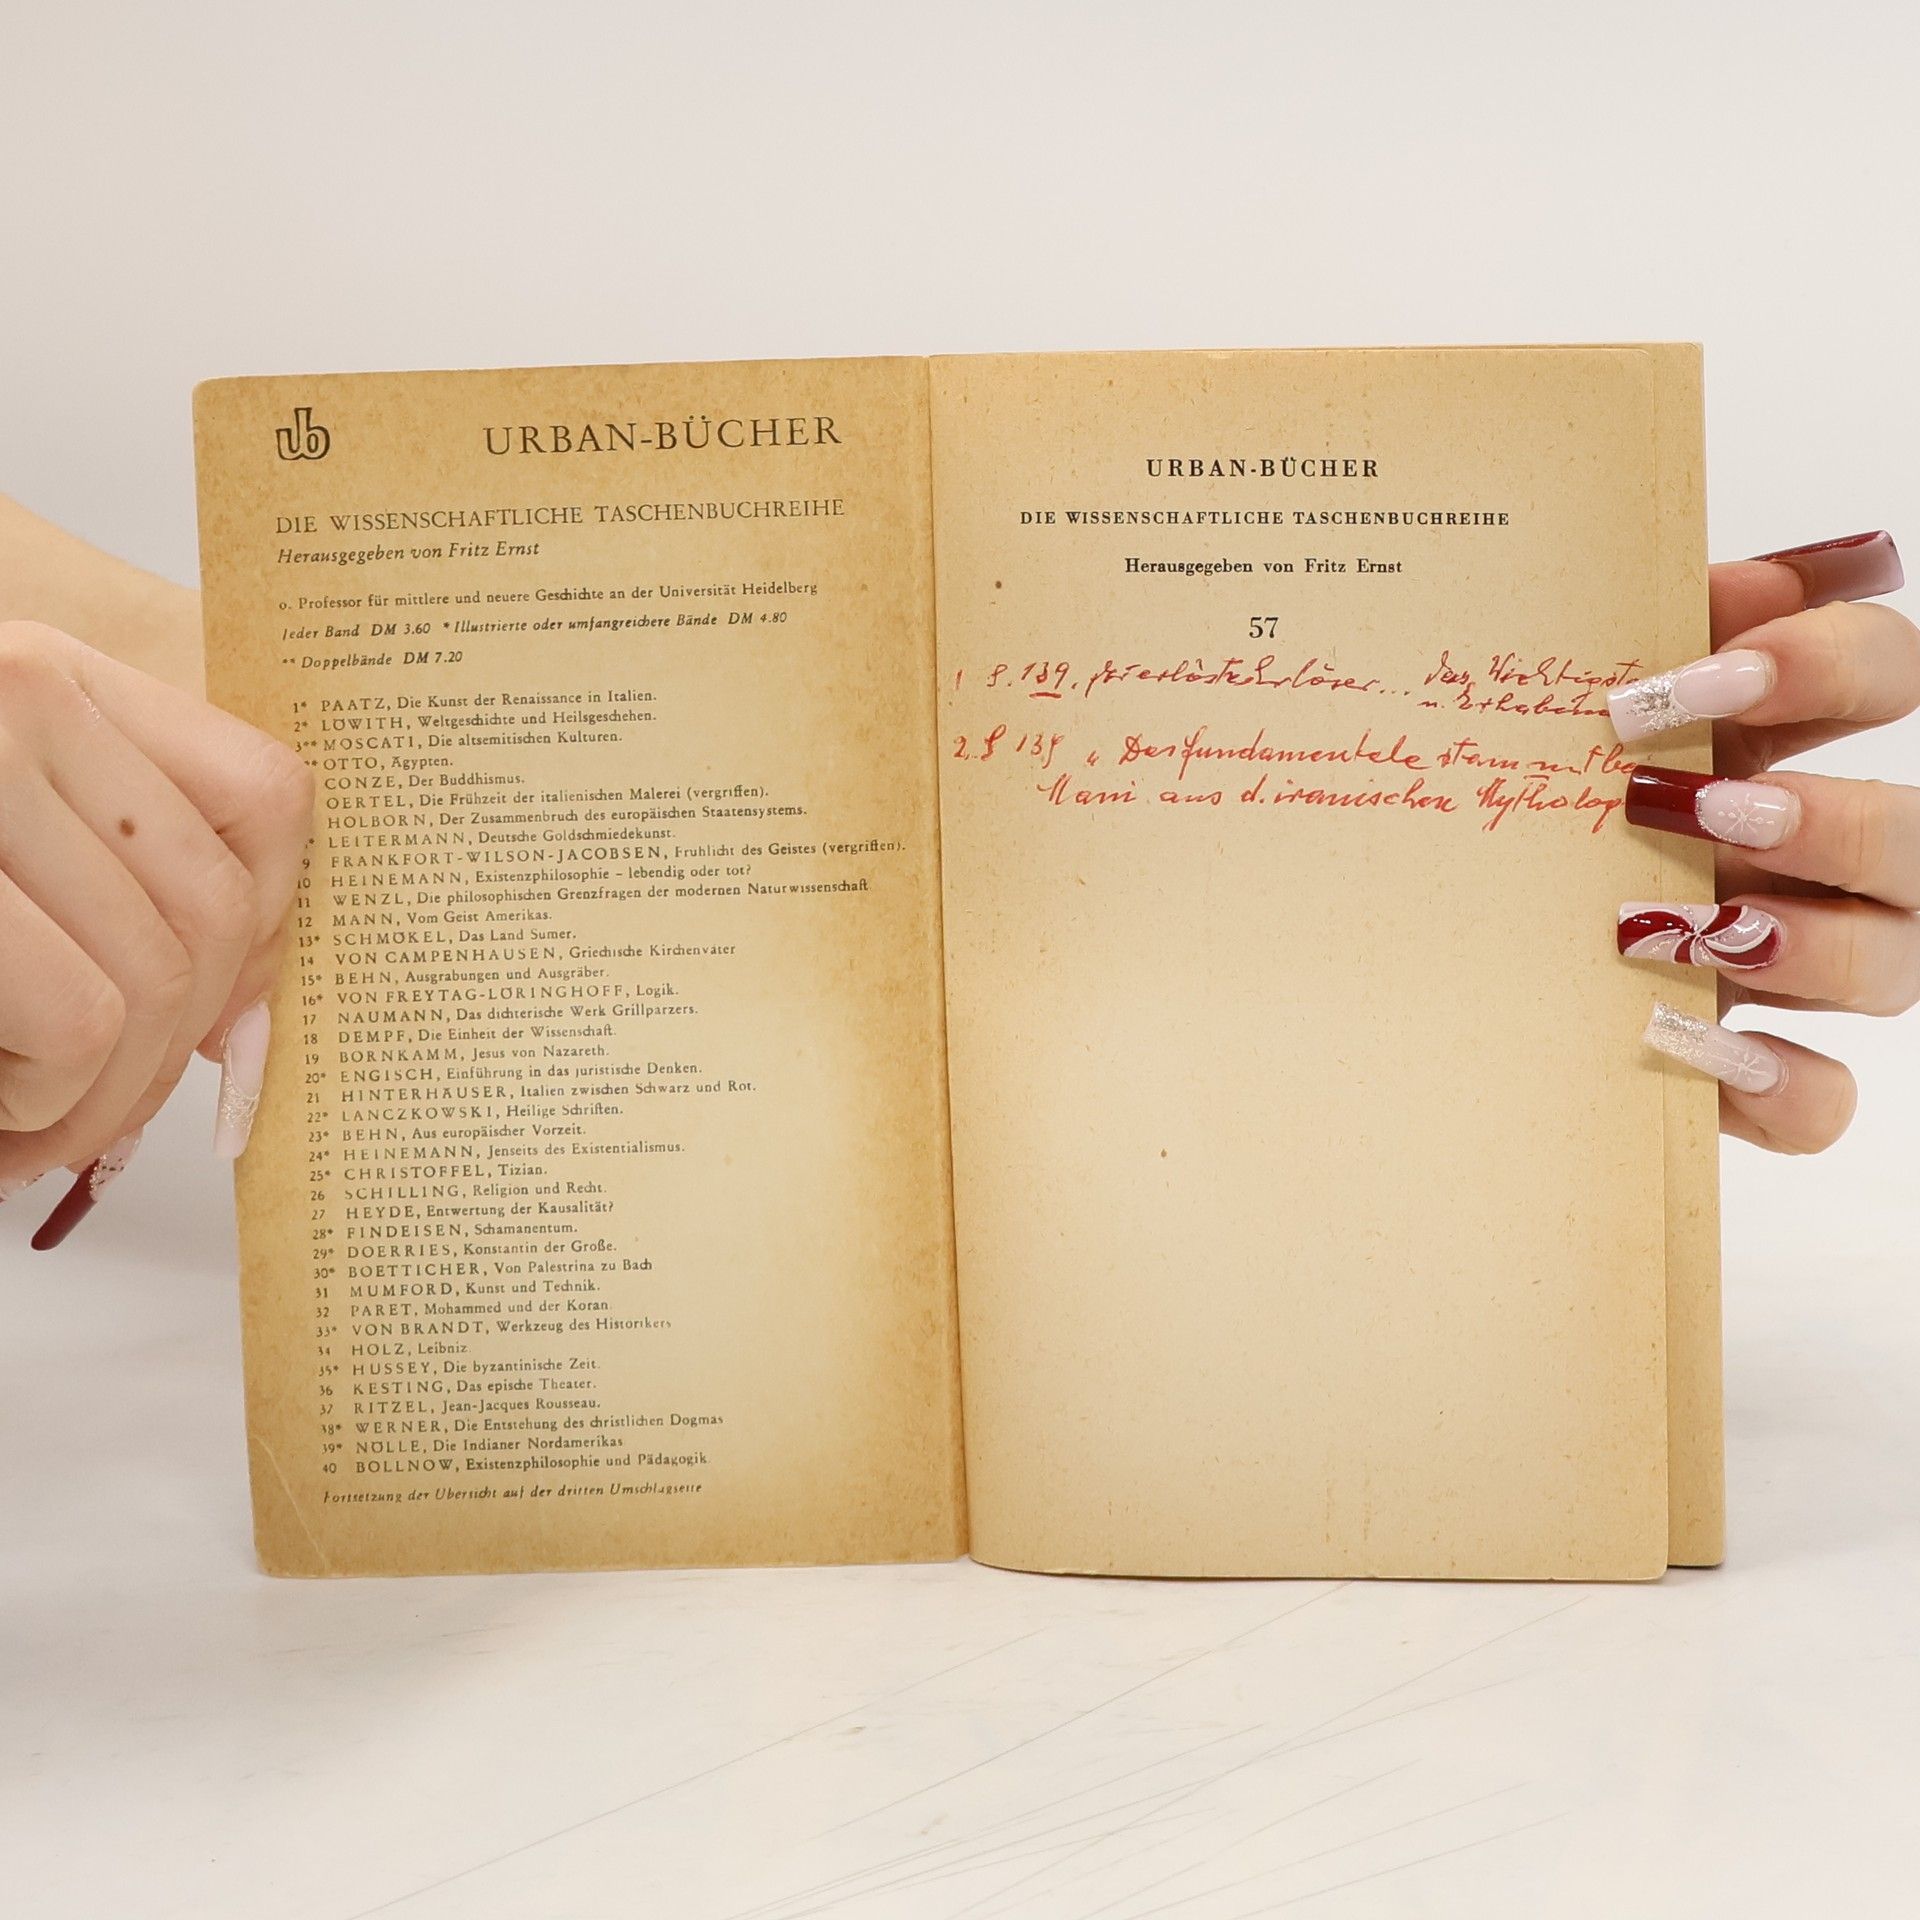 ub
URBAN-BÜCHER
DIE WISSENSCHAFTLICHE TASCHENBUCHREIHE
Herausgegeben von Fritz Ernst
o. Professor für mittlere und neuere Geschichte an der Universität Heidelberg
Jeder Band DM 3.60 * Illustrierte oder umfangreichere Bände DM 4.80
** Doppelbände DM 7.20
1* PAATZ, Die Kunst der Renaissance in Italien.
2* LÖWITH, Weltgeschichte und Heilsgeschehen.
3** MOSCATI, Die altsemitischen Kulturen.
** OTTO, Ägypten.
CONZE, Der Buddhismus.
OERTEL, Die Frühzeit der italienischen Malerei (vergriffen).
HOLBORN, Der Zusammenbruch des europäischen Staatensystems.
* LEITERMANN, Deutsche Goldschmiedekunst.
9 FRANKFORT-WILSON-JACOBSEN, Frühlicht des Geistes (vergriffen).
10 HEINEMANN, Existenzphilosophie – lebendig oder tot?
11 WENZL, Die philosophischen Grenzfragen der modernen Naturwissenschaft
12 MANN, Vom Geist Amerikas.
13* SCHMÖKEL, Das Land Sumer.
14 VON CAMPENHAUSEN, Griechische Kirchenväter
15* BEHN, Ausgrabungen und Ausgräber.
16* VON FREYTAG-LÖRINGHOFF, Logik.
17 NAUMANN, Das dichterische Werk Grillparzers.
18 DEMPF, Die Einheit der Wissenschaft.
19 BORNKAMM, Jesus von Nazareth.
20* ENGISCH, Einführung in das juristische Denken.
21 HINTERHÄUSER, Italien zwischen Schwarz und Rot.
22* LANCZKOWSKI, Heilige Schriften.
23* BEHN, Aus europäischer Vorzeit.
24* HEINEMANN, Jenseits des Existentialismus.
25* CHRISTOFFEL, Tizian.
26 SCHILLING, Religion und Recht.
27 HEYDE, Entwertung der Kausalität?
28* FINDEISEN, Schamanentum.
29* DOERRIES, Konstantin der Große.
30* BOETTICHER, Von Palestrina zu Bach
31 MUMFORD, Kunst und Technik.
32 PARET, Mohammed und der Koran.
33* VON BRANDT, Werkzeug des Historikers
34 HOLZ, Leibniz.
35* HUSSEY, Die byzantinische Zeit.
36 KESTING, Das epische Theater.
37 RITZEL, Jean-Jacques Rousseau.
38* WERNER, Die Entstehung des christlichen Dogmas
39* NÖLLE, Die Indianer Nordamerikas
40 BOLLNOW, Existenzphilosophie und Pädagogik.
Fortsetzung der Übersicht auf der dritten Umschlagseite
URBAN-BÜCHER
DIE WISSENSCHAFTLICHE TASCHENBUCHREIHE
Herausgegeben von Fritz Ernst
57
1 S. 139. ... das
u.
2. S 139 „ Das fundamentele stammt
Mani aus d. iranischen